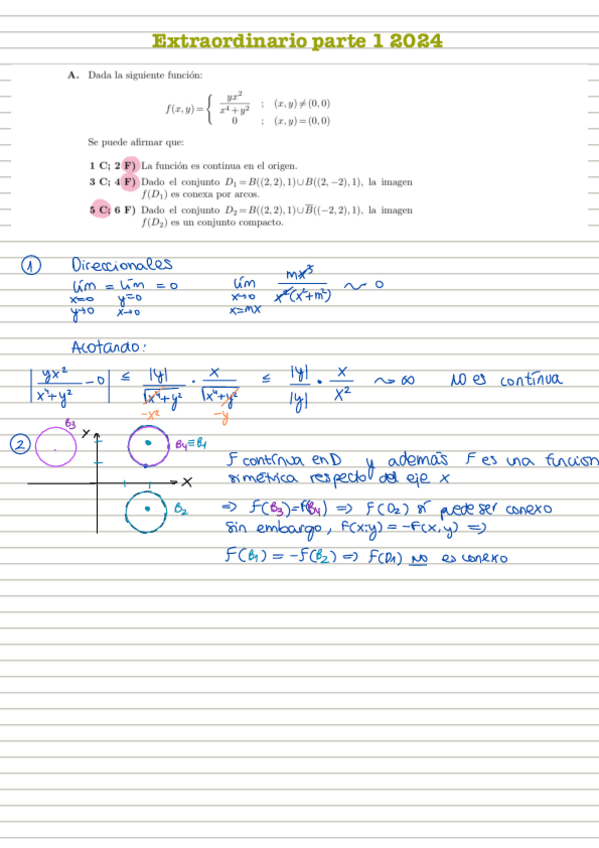 Extraordinario parte 1 2024
A. Dada la siguiente función:
f(x, y) = { yx² / x⁴ + y² ; (x, y) ≠ (0, 0)
0 ; (x, y) = (0, 0)
Se puede afirmar que:
1 C; 2 F) La función es continua en el origen.
3 C; 4 F) Dado el conjunto D₁ = B((2, 2), 1) ∪ B((2, −2), 1), la imagen
f(D₁) es conexa por arcos.
5 C; 6 F) Dado el conjunto D₂ = B((2, 2), 1) ∪ B̅((−2, 2), 1), la imagen
f(D₂) es un conjunto compacto.
① Direccionales
lím = lím = 0 lím mx³ / x²(x²+m²) ~ 0
x=0 y=0 x→0
y→0 x→0 x=mx
Acotando:
| yx² / x⁴+y² − 0 | ≤ |y| / √x⁴+y² · x / √x⁴+y² ≤ |y| / |y| · x / x² ~ ∞ No es contínua
−x² −y
② B₃ y B₄≡B₁ x B₂
f contínua en D y además f es una funcion
simétrica respecto del eje x
⇒ f(B₃)=f(B₄) ⇒ f(D₂) sí puede ser conexo
Sin embargo, f(x,y) = −f(x,y) ⇒
f(B₁) = −f(B₂) ⇒ f(D₁) NO es conexo